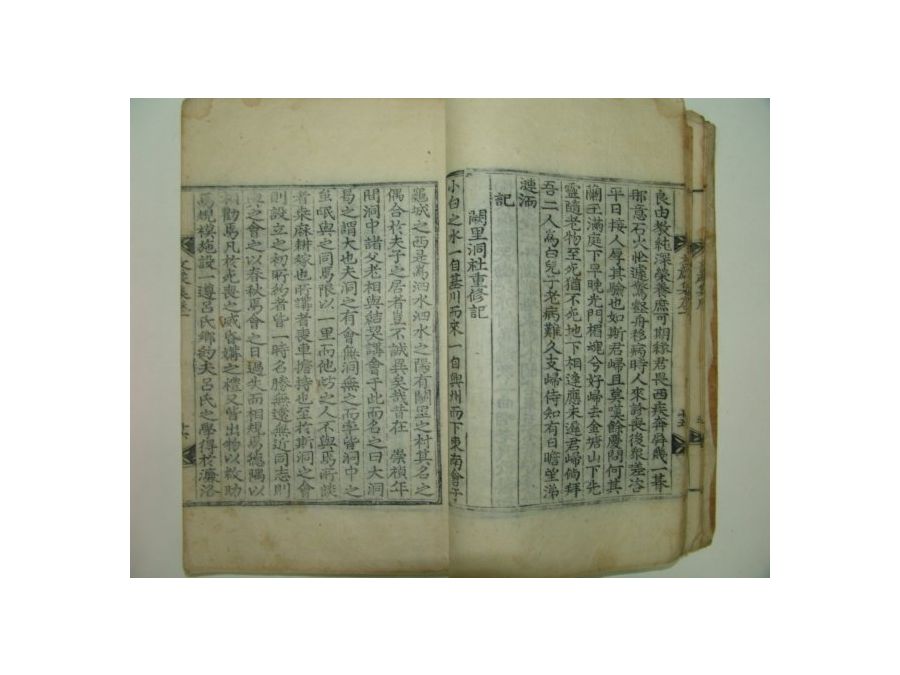 良由教純深榮養庶可期緣君畏西疾奔屏幾一朞
那意石火忙遽奪壑舟移病時人來診喪後衆羞咨
平日接人厚其驗也如斯君歸且莫嘆餘慶問何其
蘭玉滿庭下早晚光門楣魂兮好歸去金塘山下先
靈隨老物至死猶不死地下相逢應未遲君歸倘拜
吾二人爲白兒子老病難久支歸侍知有日瞻望涕
漣洏
記
闕里洞社重修記
小白之水一自基川而來一自興州而下東南會于
龜城之西是爲泗水泗水之陽有闕里之村其名之
偶合於夫子之居者豈不誠異矣哉昔在 崇禎年
間洞中諸父老相與結契講會于此而名之曰大洞
曷之謂大也夫洞之有會無洞無之而率皆洞中之
至氓與之同焉限以一里而他坊之人不與焉所談
者桑麻耕稼也所講者喪車擔持也至於斯洞之會
則設立之初所約者皆一時名勝無遠無近同志則
與之會之以春秋焉會之日過失而相規焉德隅以
相勸焉凡於死喪之威昏媾之禮又皆出物以救助
焉規模施設一遵呂氏鄕約夫呂氏之學得於濂洛